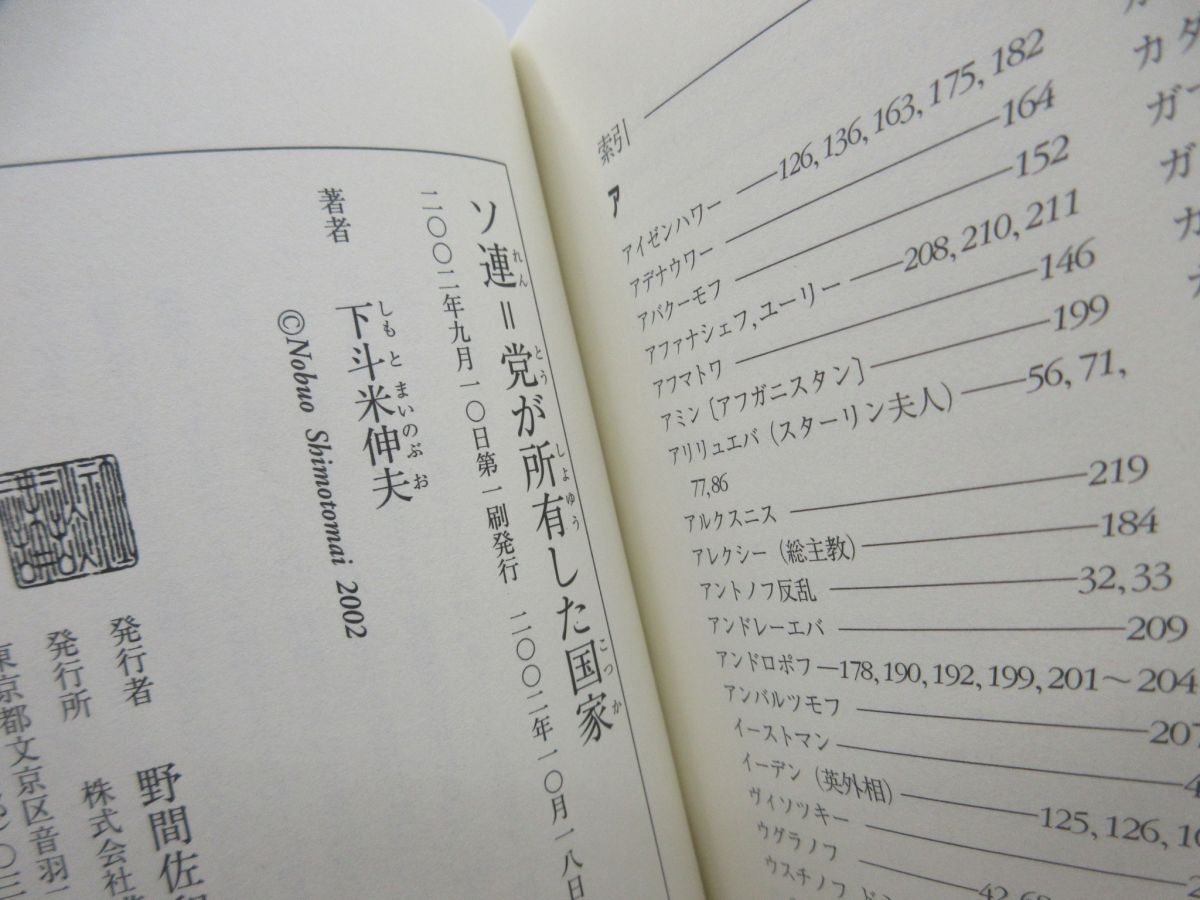 索引
ア
アイゼンハワー——126, 136, 163, 175, 182
アデナウワー——164
アバクーモフ——152
アファナシェフ, ユーリー——208, 210, 211
アフマトワ——146
アミン〔アフガニスタン〕——199
アリリュエバ（スターリン夫人）——56, 71,
77, 86
アルクスニス——219
アレクシー（総主教）——184
アントノフ反乱——32, 33
アンドレーエバ——209
アンドロポフ—178, 190, 192, 199, 201〜204
アンバルツモフ——207
イーストマン
イーデン（英外相）——125, 126,
ヴィソツキー
ウグラノフ
ウスチノフ
ソ連＝党が所有した国家
れん とう しょゆう こっか
二〇〇二年九月一〇日第一刷発行 二〇〇二年一〇月一八日
著者 下斗米伸夫
しもとまいのぶお
©Nobuo Shimotomai 2002
発行者 野間佐
発行所 株式会社
東京都文京区音羽